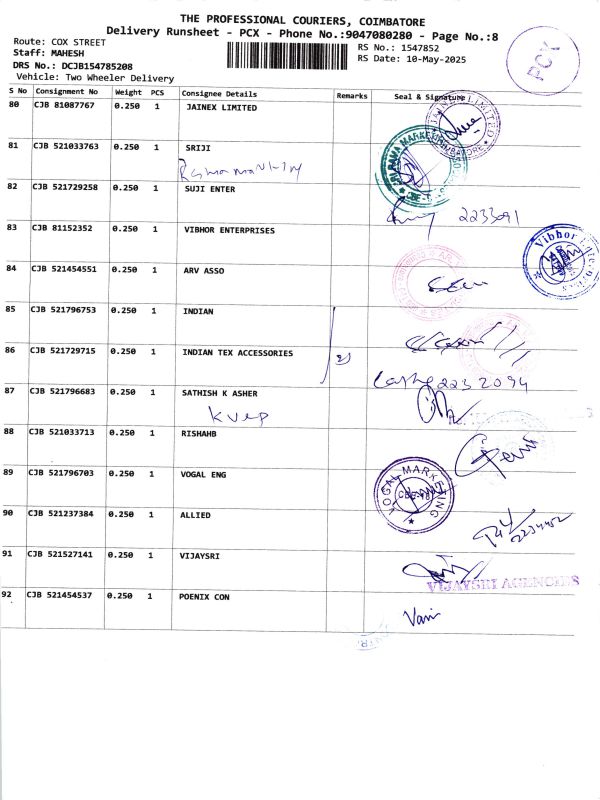 THE PROFESSIONAL COURIERS, COIMBATORE
Delivery Runsheet - PCX - Phone No.:9047080280 - Page No.:8
Route: COX STREET
Staff: MAHESH
DRS No.: DCJB154785208
Vehicle: Two Wheeler Delivery
RS No.: 1547852
RS Date: 10-May-2025
PCX
S No Consignment No Weight PCS Consignee Details Remarks Seal & Signature
80 CJB 81087767 0.250 1 JAINEX LIMITED
81 CJB 521033763 0.250 1 SRIJI
82 CJB 521729258 0.250 1 SUJI ENTER
2233091
83 CJB 81152352 0.250 1 VIBHOR ENTERPRISES
84 CJB 521454551 0.250 1 ARV ASSO
85 CJB 521796753 0.250 1 INDIAN
86 CJB 521729715 0.250 1 INDIAN TEX ACCESSORIES
2232094
87 CJB 521796683 0.250 1 SATHISH K ASHER
KVEP
88 CJB 521033713 0.250 1 RISHAHB
89 CJB 521796703 0.250 1 VOGAL ENG
VOGAL MARKETING
90 CJB 521237384 0.250 1 ALLIED
91 CJB 521527141 0.250 1 VIJAYSRI
VIJAYSRI AGENCIES
92 CJB 521454537 0.250 1 POENIX CON
Vani